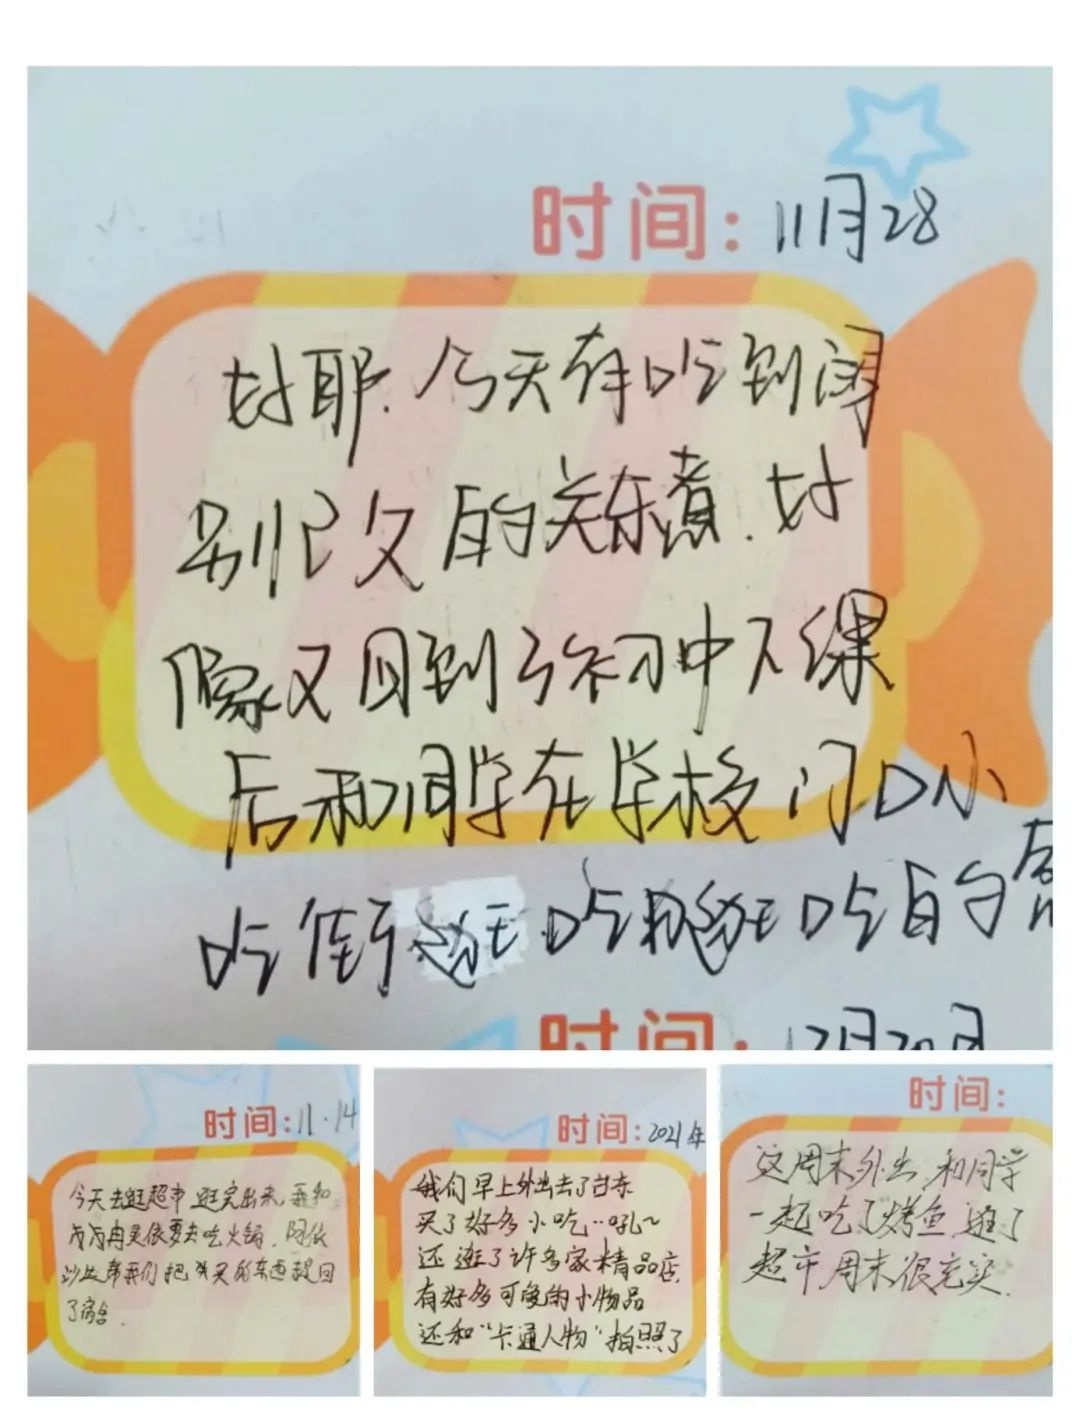 时间：11月28
好耶.今天有吃到阔
别已久的关东煮.好
像又回到了初中下课
后和同学在学校门口小
吃街逛吃逛吃的
时间：12月20日
时间：11.14
今天去逛超市，逛完出来，我和
冉灵依要去吃火锅，阿依
帮我们把买的东西提回
了宿舍.
时间：2021年
我们早上外出去了
买了好多小吃…吼~
还逛了许多家精品店.
有好多可爱的小物品
还和“卡通人物”拍照了
时间：
这周末外出，和同学
一起吃了烤鱼，逛了
超市，周末很充实.